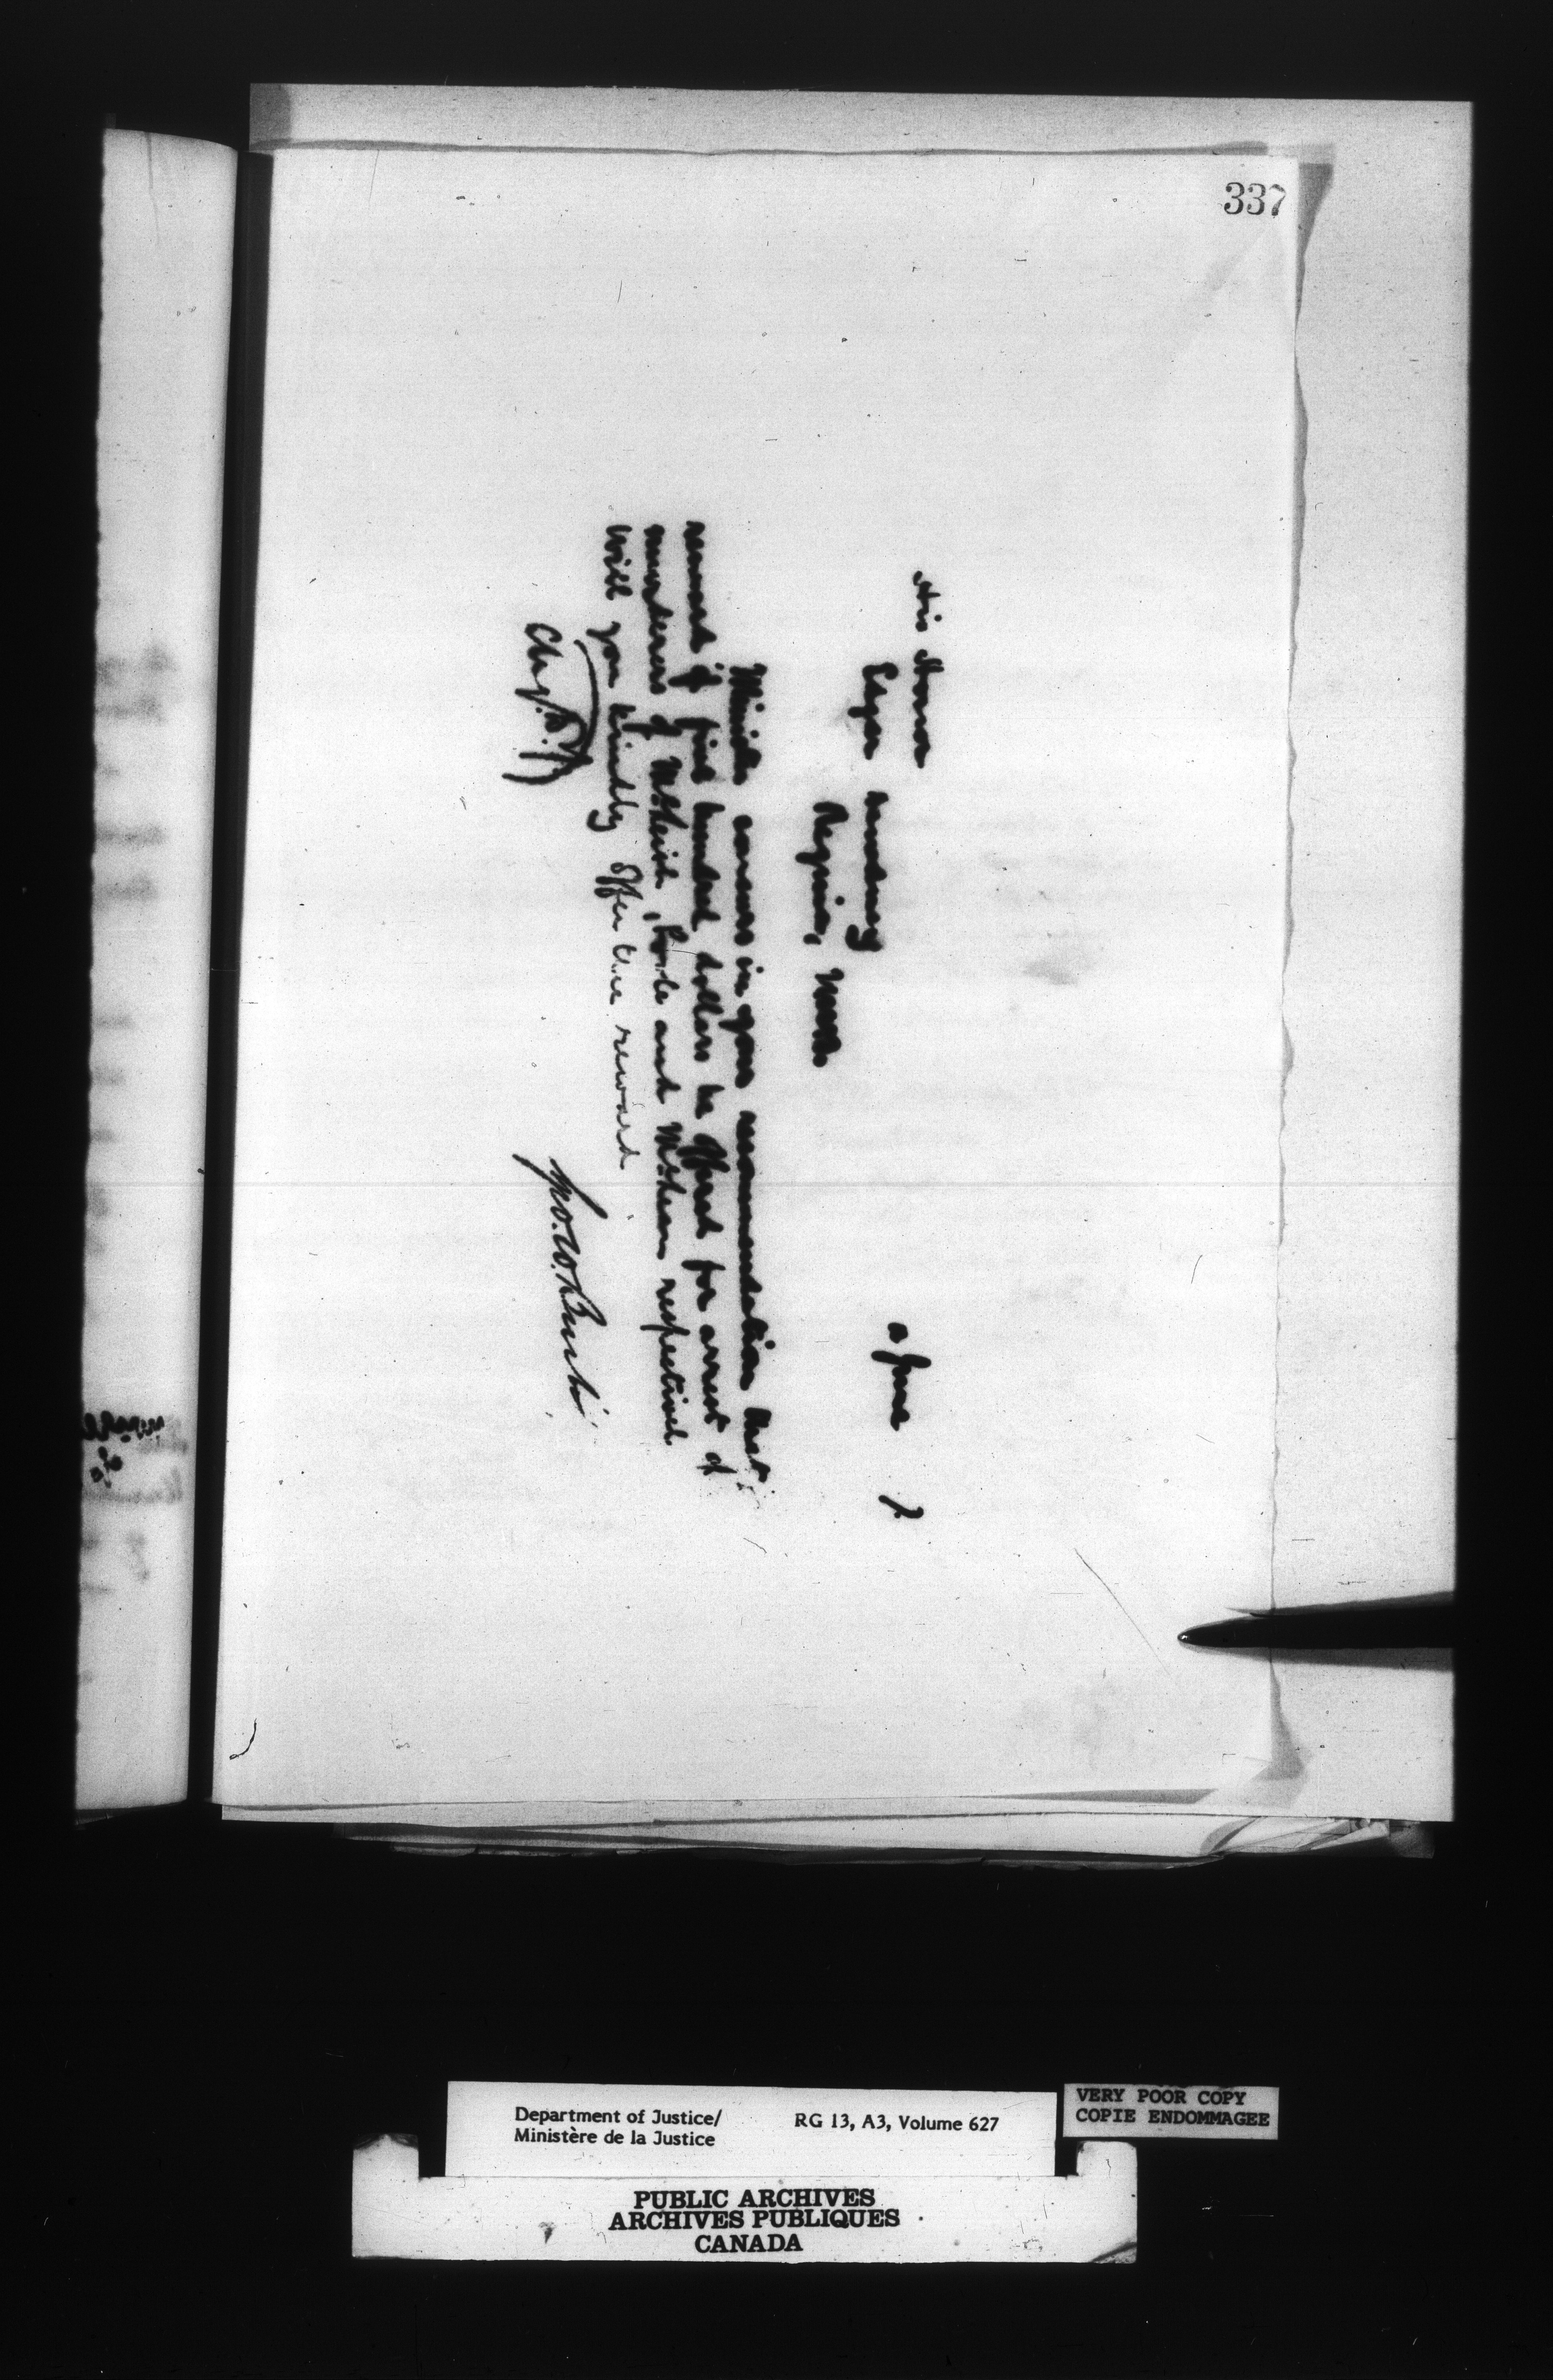 337
His Honor
Edgar Dewdney
Regina, NWT
2 June 7.
Minister concurs in your recommendation that
reward of five hundred dollars be offered for arrest of
murderers of McLeish, and McLean respectively
Will you kindly offer the reward
Geo. W. Burbidge
Department of Justice/
Ministère de la Justice
RG 13, A3, Volume 627
VERY POOR COPY
COPIE ENDOMMAGEE
PUBLIC ARCHIVES
ARCHIVES PUBLIQUES
CANADA